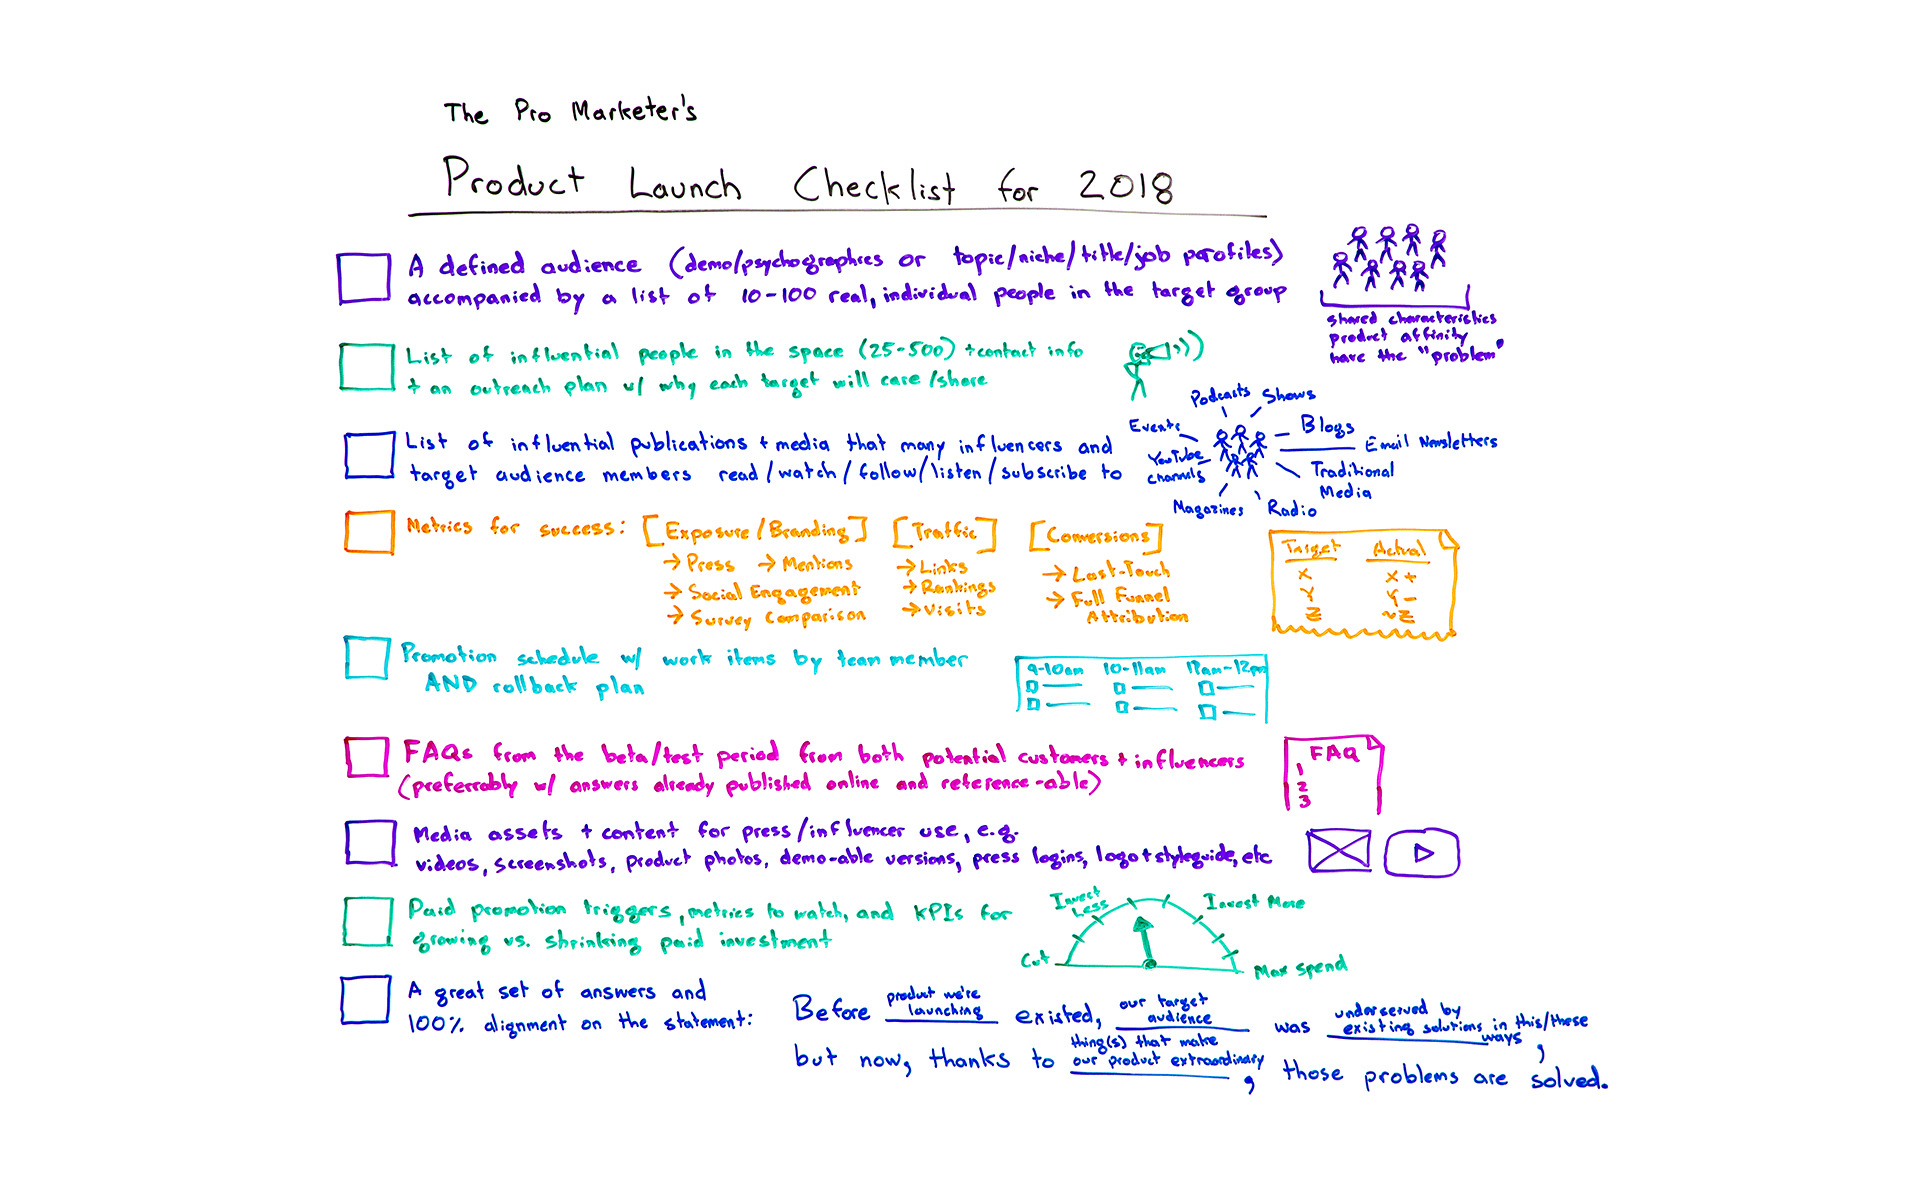 The Pro Marketer's
Product Launch Checklist for 2018
A defined audience (demo/psychographics or topic/niche/title/job profiles)
accompanied by a list of 10-100 real, individual people in the target group
shared characteristics
product affinity
have the "problem"
List of influential people in the space (25-500) + contact info
+ an outreach plan w/ why each target will care/share
List of influential publications + media that many influencers and
target audience members read/watch/follow/listen/subscribe to
Podcasts
Shows
Events
Blogs
Email Newsletters
YouTube
channels
Traditional
Media
Magazines
Radio
Metrics for success:
[Exposure/Branding]
→ Press → Mentions
→ Social Engagement
→ Survey Comparison
[Traffic]
→ Links
→ Rankings
→ Visits
[Conversions]
→ Last-Touch
→ Full Funnel
Attribution
Target Actual
X X+
Y Y-
Z ~Z
Promotion schedule w/ work items by team member
AND rollback plan
9-10am 10-11am 11am-12pm
FAQs from the beta/test period from both potential customers + influencers
(preferrably w/ answers already published online and reference-able)
FAQ
1
2
3
Media assets + content for press/influencer use, e.g.
videos, screenshots, product photos, demo-able versions, press logins, logo + styleguide, etc
Paid promotion triggers, metrics to watch, and KPIs for
growing vs. shrinking paid investment
Cut
Invest
Less
Invest More
Max Spend
A great set of answers and
100% alignment on the statement:
Before product we're launching existed, our target audience was underserved by existing solutions in this/these ways,
but now, thanks to thing(s) that make our product extraordinary, those problems are solved.